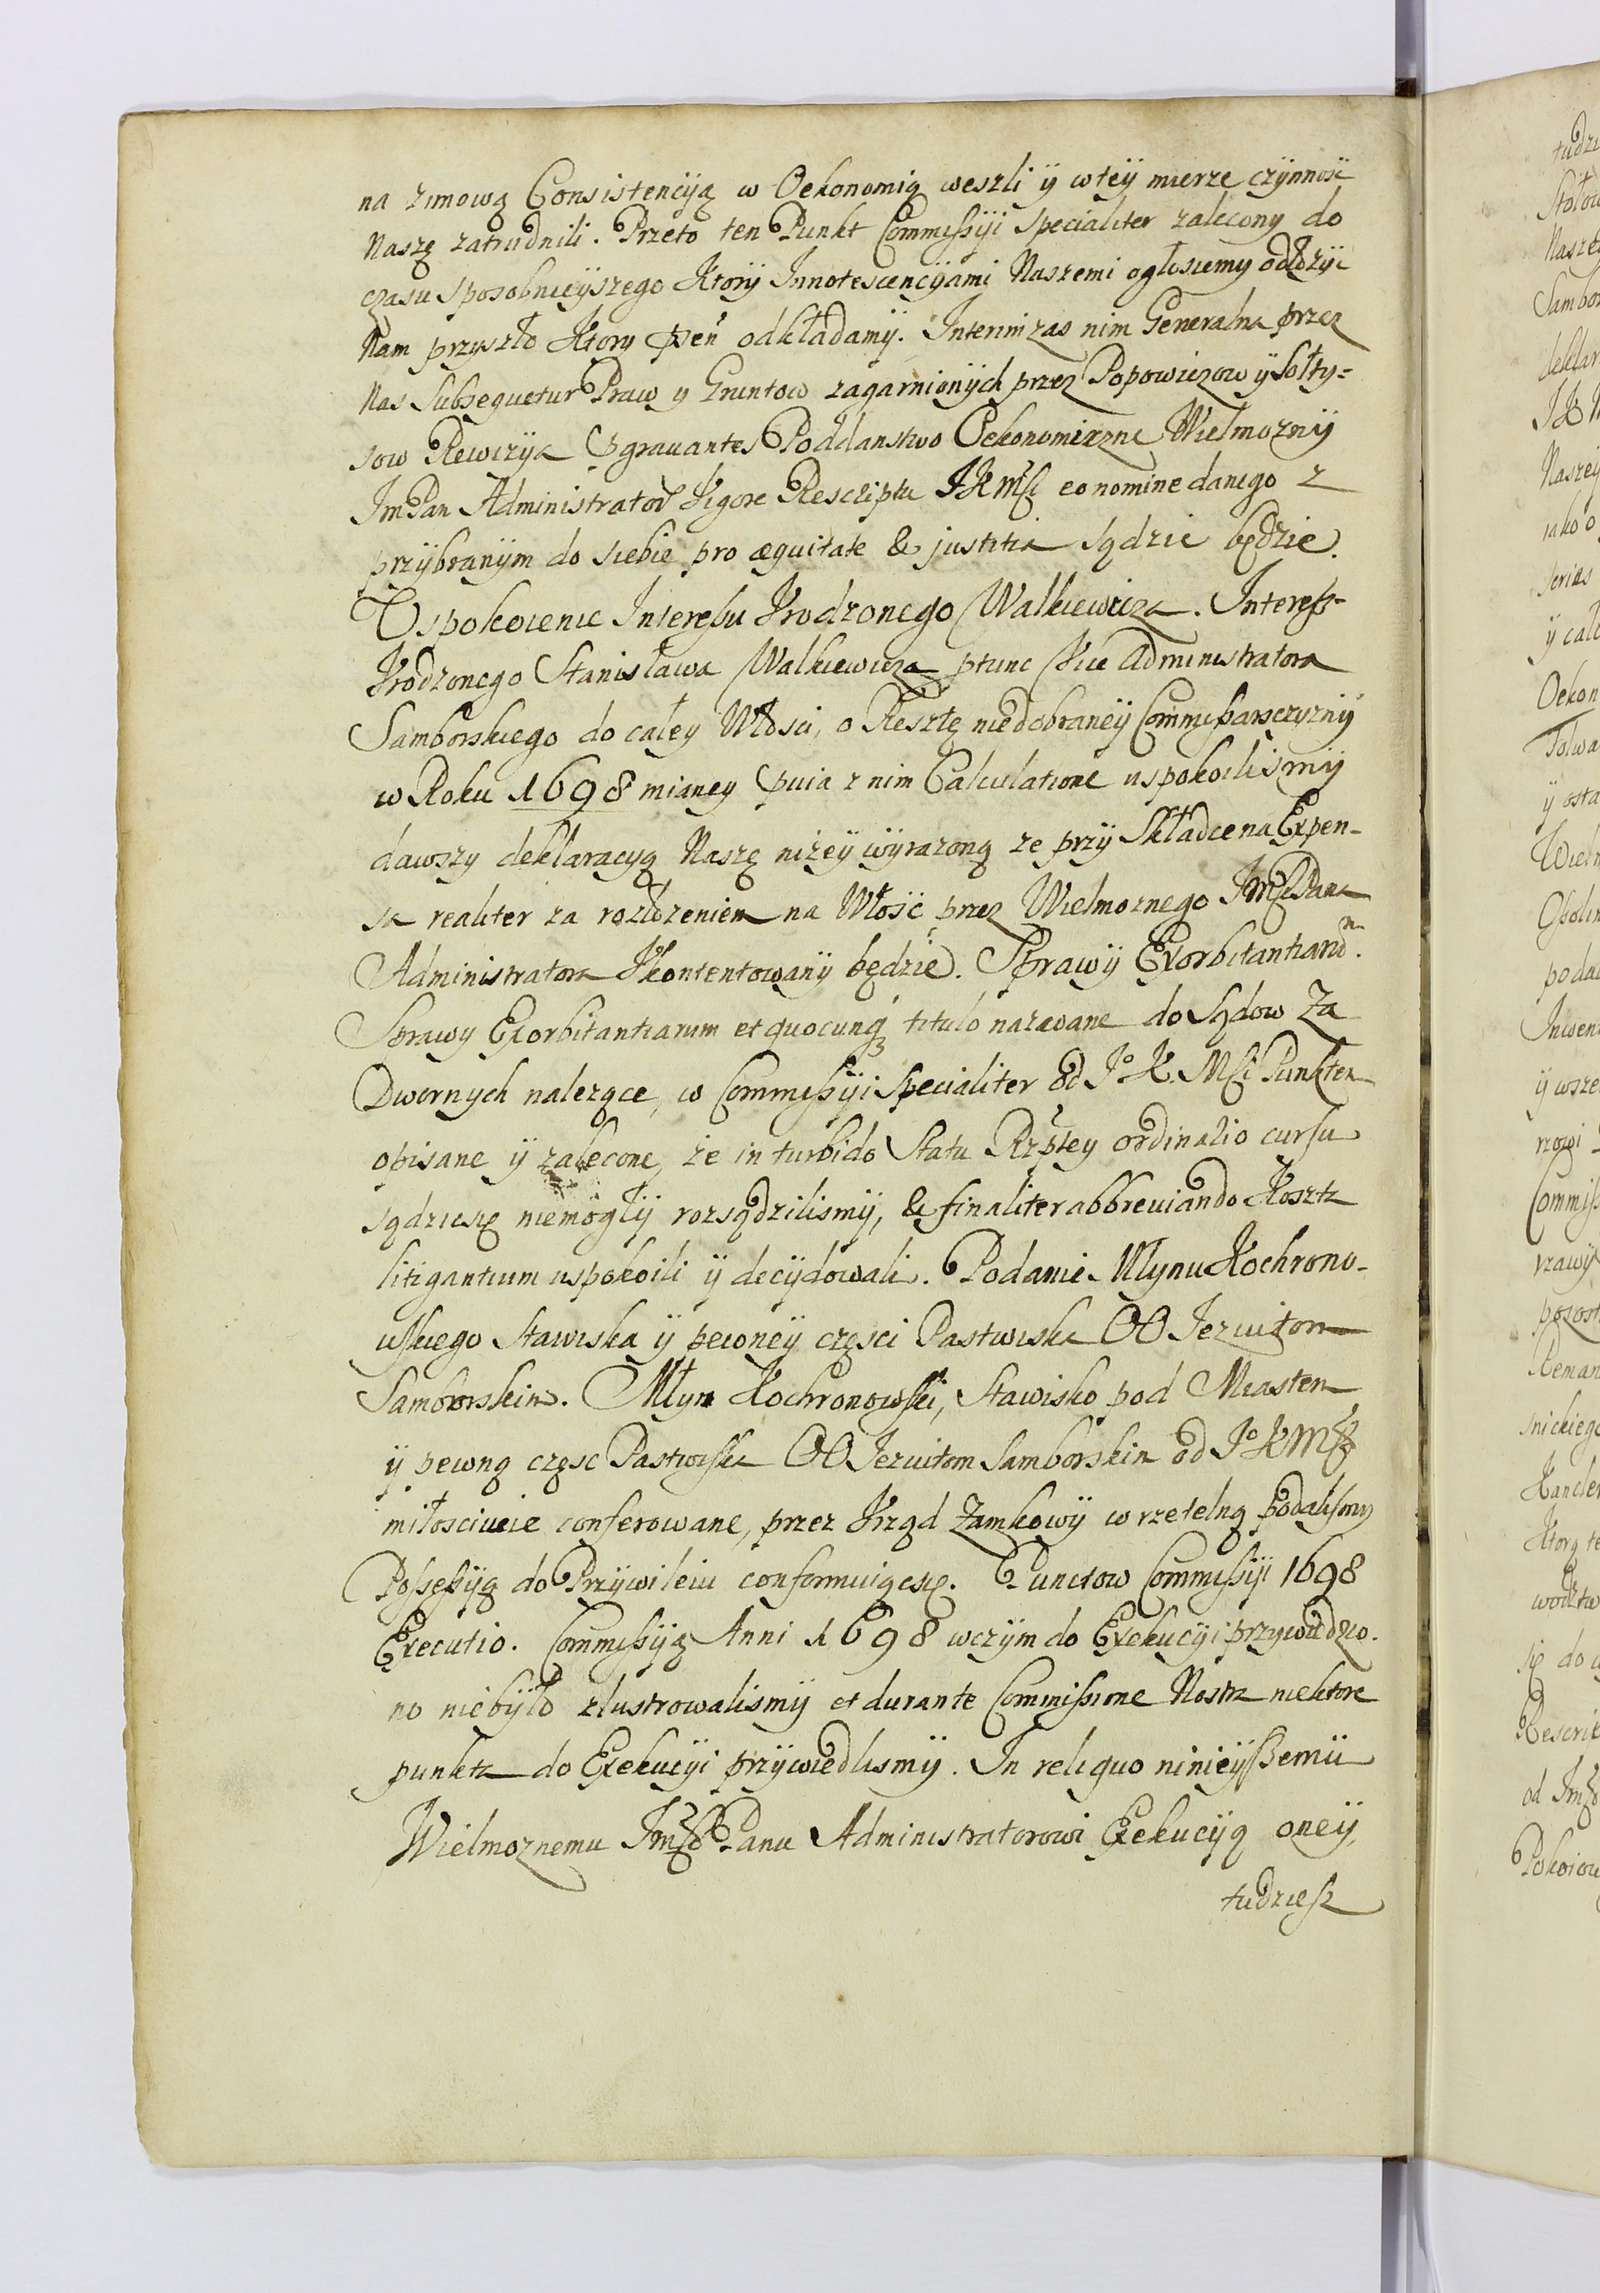 na zimową Consistencyią w Oekonomią weszli ÿ wteÿ mierze czÿnnosc
Naszę zatrudnili. Przeto ten Punkt Commissÿi specialiter zalecony do
czasu sposobnieÿszego Ktorÿ Innotescencÿami Naszemi ogłosiemy odłozÿc
Nam przyszło Ktory odkładamÿ. Interim zas nim Generalna przez
Nas Subsequetur Praw y Gruntow zagarnionÿch przez Popowiczow ÿ Sołty=
sow Rewizÿa Aggrauantes Poddanstwo Oekonomiczne Wielmoznÿ
Im Pan Administrator Vigore Rescriptu JKMsci eo nomine danego z
przÿbranÿm do siebie pro æquitate & justitia sądzic będzie.
Uspokoienie Interessu Vrodzonego Walkiewicza. Interess
Vrodzonego Stanisława Walkiewicza ptunc Vice Administratora
Samborskiego do całey Włosci, o Resztę niedobraneÿ Commissarsczyznÿ
w Roku 1698 mianey z nim Calculatione uspokoilismÿ
dawszy deklaracyą Naszę niżeÿ wÿrazoną ze przÿ Składce na Expen-
sa realiter za rozłozeniem na Włość przez Wielmoznego JmsciPana
Administratora Vkontentowanÿ będzie. Sprawÿ Exorbitantiarum.
Sprawy Exorbitantiarum et quocunq titulo nazwane do Sądow Za
Dwornych nalezące, w Commissÿi specialiter od Jo K Msci Punktem
opisane ÿ zalecone, że in turbido Statu Rzptey ordinario cursu
sądzicsię niemogłÿ rozsądzilismÿ, & finaliter abbreuiando Koszta
litigantium uspokoili ÿ decÿdowali. Podanie Młynu Kochrono-
wskiego Stawiska ÿ pewneÿ częsci Pastwiska OO Jezuitom
Samborskim. Młyn Kochronowski, Stawisko pod Miastem
ÿ pewną częsc Pastwiska OO Jezuitom Samborskim od Jo K Msci
miłosciwie conferowane, przez Vrząd Zamkowÿ w rzetelną podalismy
Possessÿą do Przÿwileiu conformuiącsię. Punctow Commissÿi 1698
Executio. Commissÿą Anni 1698 wczÿm do Exekucÿi przywiedzio-
no niebÿło zlustrowalismÿ et durante Commissione Nostra niektore
punkta do Exekucÿi przÿwiedlismÿ. In reliquo ninieÿszemu
Wielmoznemu Jmsci Panu Administratorowi Exekucÿą oneÿ,
tudziesz